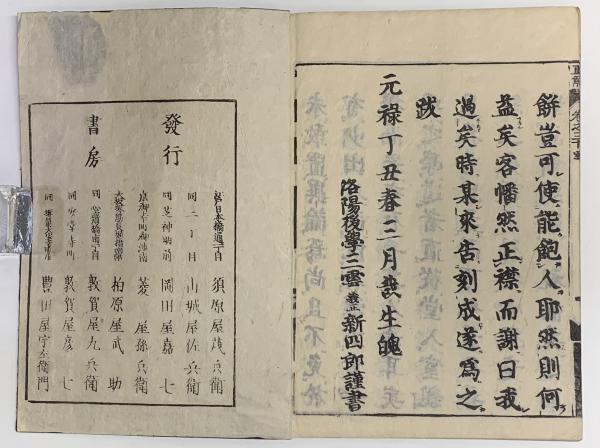 餅豈可使能飽人耶然則何
益矣客幡然正襟而謝曰我
過矣時某來告刻成遂為之
跋
元祿丁丑春三月哉生魄
洛陽後學三雲義正新四郎謹書
發行
書房
江戸日本橋通一丁目 須原屋茂兵衛
同二丁目 山城屋佐兵衛
同芝神明前 岡田屋嘉七
京御幸町御池南 菱屋孫兵衛
柏原屋武助
同心齋橋 敦賀屋九兵衛
同 敦賀屋彦七
同 豊田屋宇左衛門